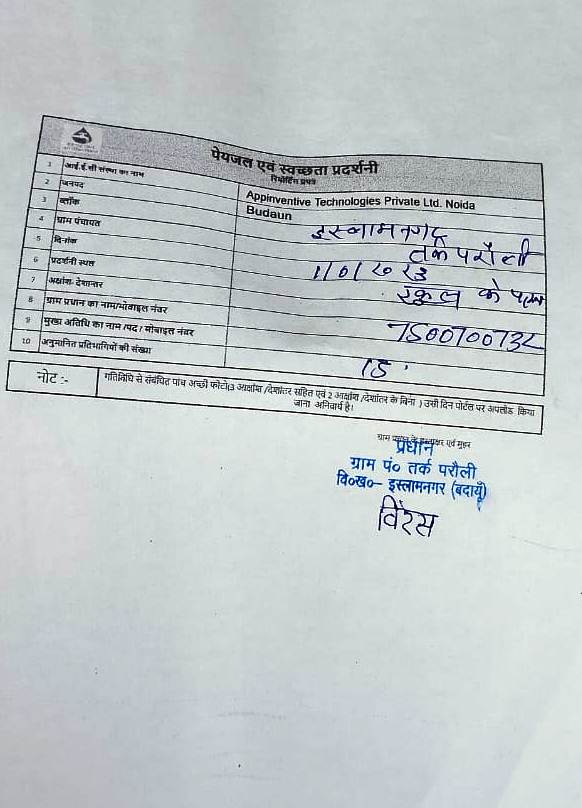 पेयजल एवं स्वच्छता प्रदर्शनी
रिपोर्टिंग प्रपत्र
1 आई.ई.सी संस्था का नाम Appinventive Technologies Private Ltd. Noida
2 जनपद Budaun
3 ब्लॉक इस्लामनगर
4 ग्राम पंचायत तर्क परौली
5 दिनांक
6 प्रदर्शनी स्थल स्कूल के पास
7 अक्षांश- देशान्तर
8 ग्राम प्रधान का नाम/मोबाइल नंबर 7500700732
9 मुख्य अतिथि का नाम /पद / मोबाइल नंबर
10 अनुमानित प्रतिभागियों की संख्या 15
नोट :- गतिविधि से संबंधित पांच अच्छी फोटो(3 अक्षांश /देशांतर सहित एवं 2 अक्षांश /देशांतर के बिना ) उसी दिन पोर्टल पर अपलोड किया
जाना अनिवार्य है।
ग्राम प्रधान के हस्ताक्षर एवं मुहर
प्रधान
ग्राम पं० तर्क परौली
वि०ख०- इस्लामनगर (बदायूँ)